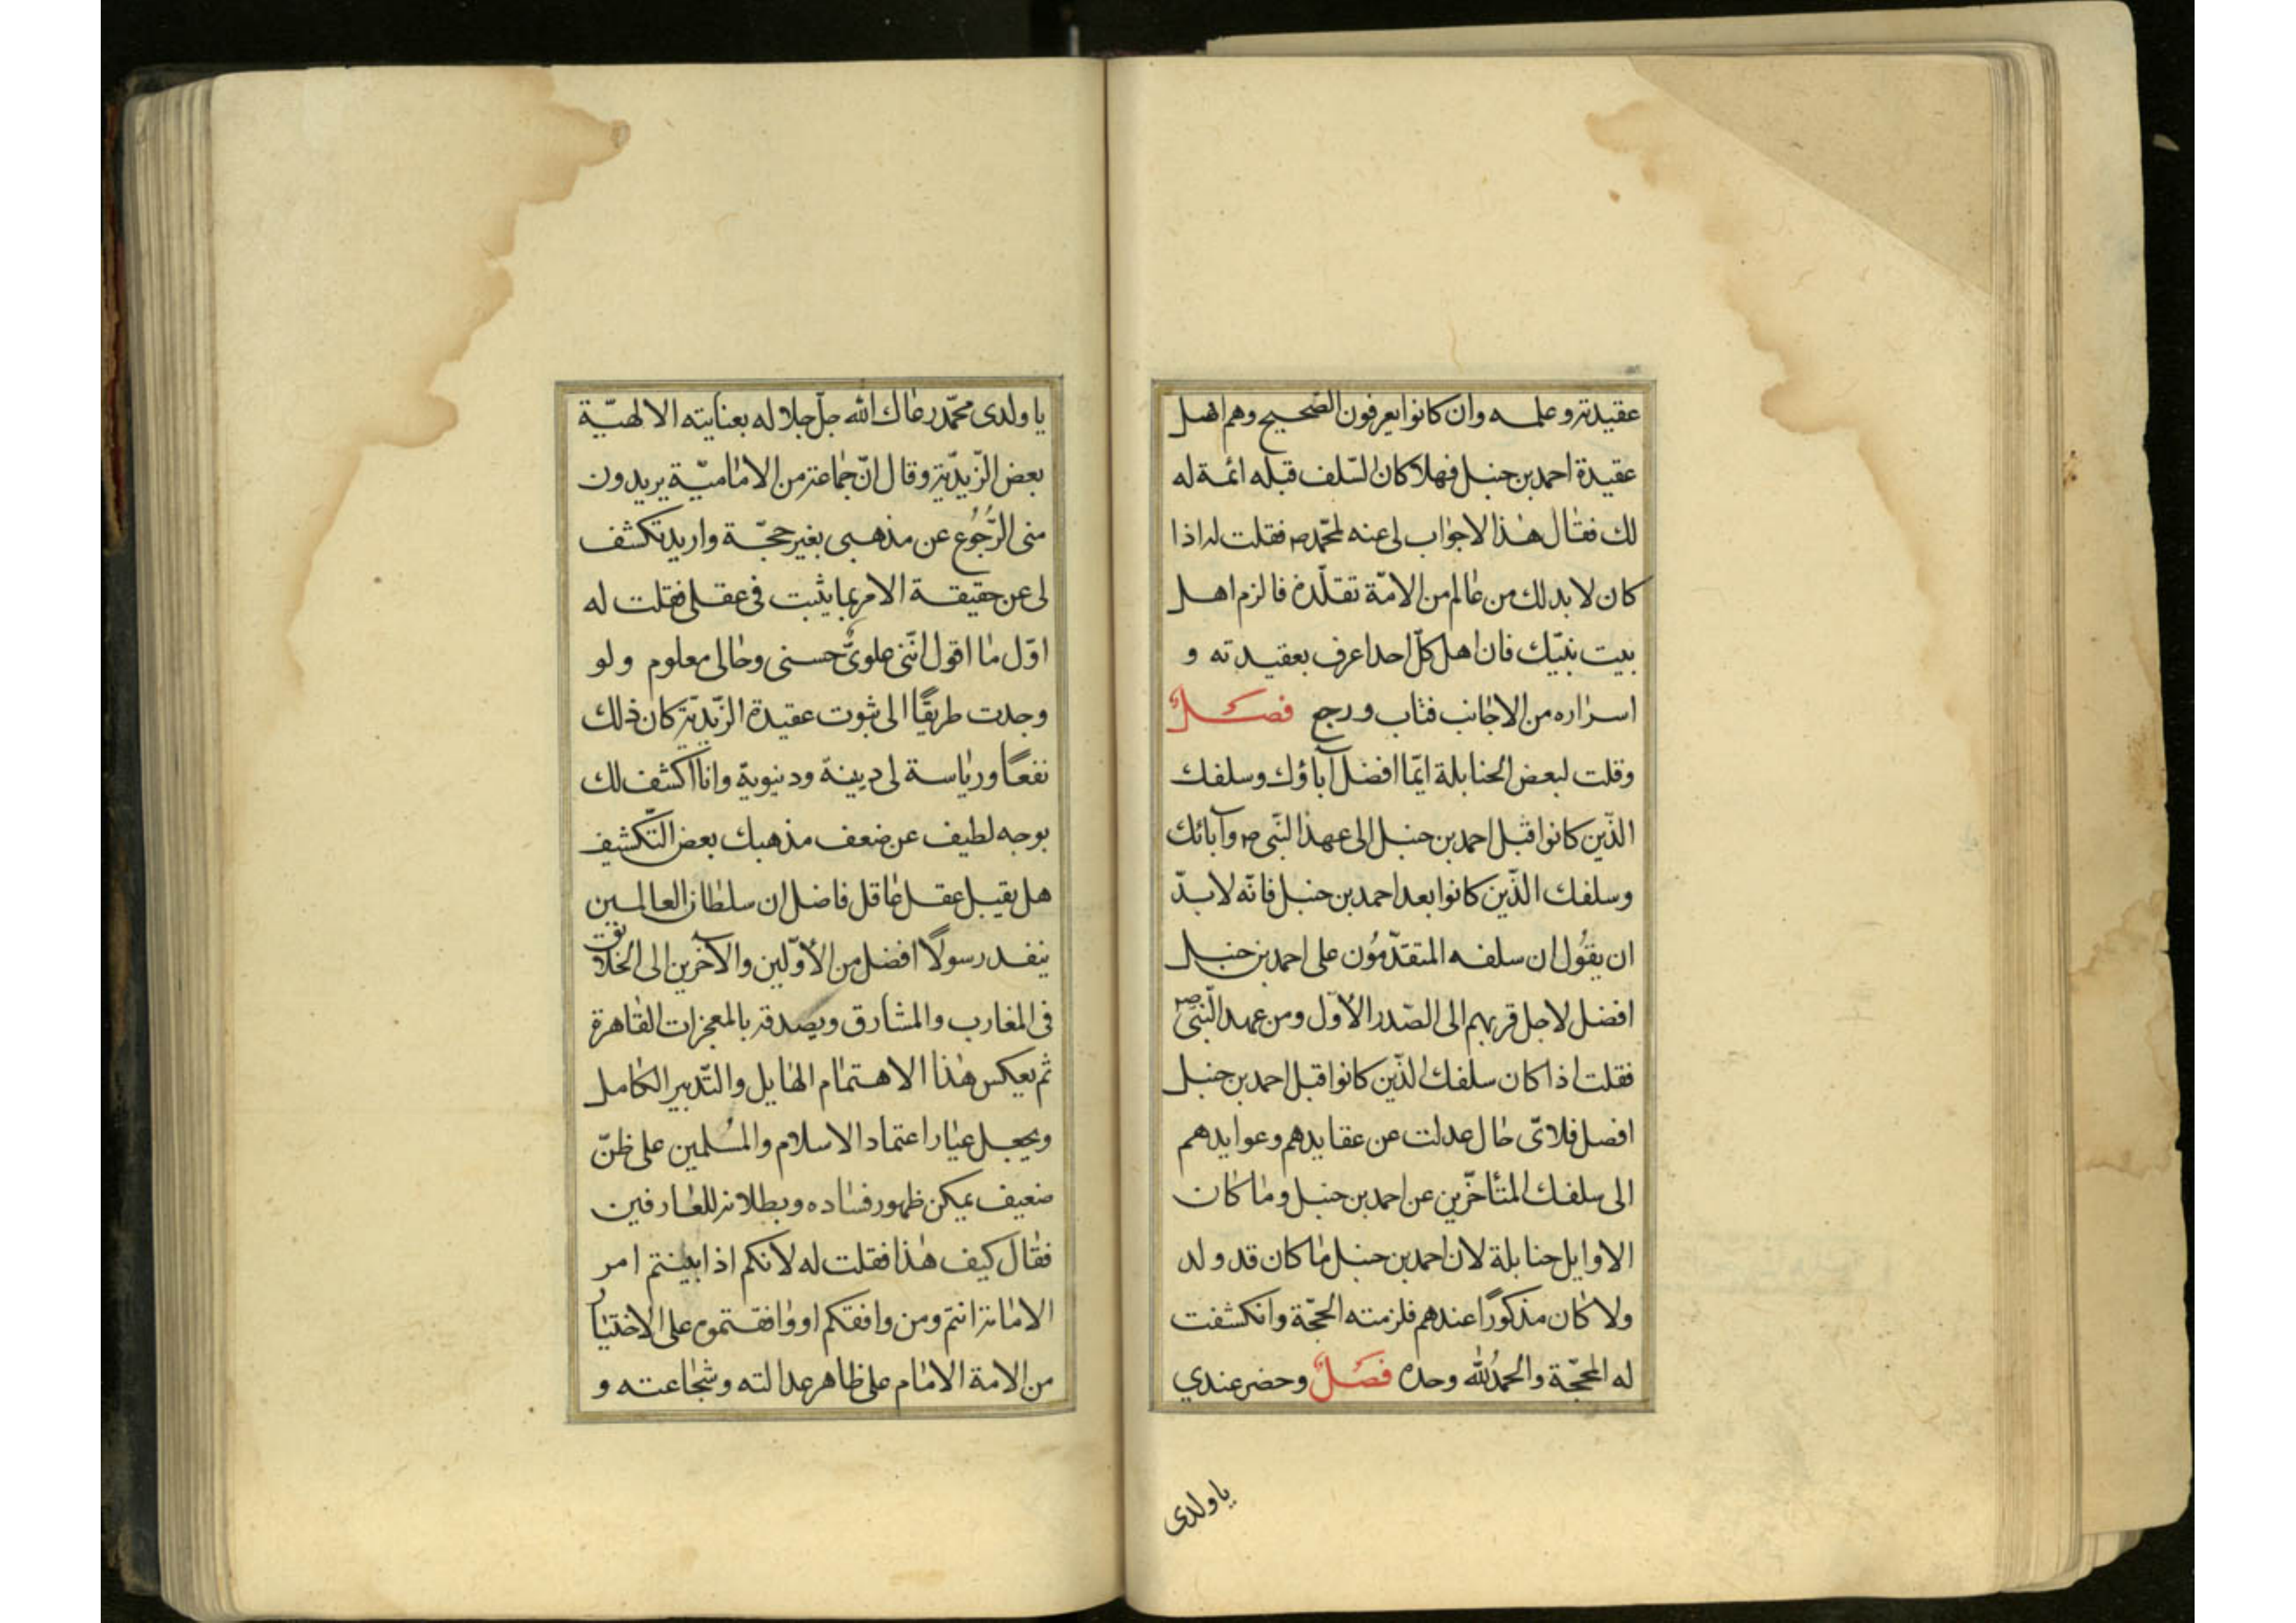 عقيدته وعلمه وان كانوا يعرفون الصحيح وهم اهل
عقيدة احمد بن حنبل فهلا كان السّلف قبله ائمة له
لك فقال هذا لا جواب لى عنه لمحمّد ص فقلت له اذا
كان لا بد لك من عالم من الامّة تقلّده فالزم اهل
بيت نبيّك فان اهل كلّ احد اعرف بعقيدته و
اسراره من الاجانب فتاب ورجع فصل
وقلت لبعض الحنابلة ايّما افضل آباؤك وسلفك
الذّين كانوا قبل احمد بن حنبل الى عهد النّبى ص وآبائك
وسلفك الذّين كانوا بعد احمد بن حنبل فانّه لا بدّ
ان يقُول ان سلفه المتقدّمُون على احمد بن حنبل
افضل لاجل قربهم الى الصّدر الاوّل ومن عهد النّبىّ ص
فقلت اذا كان سلفك الذّين كانوا قبل احمد بن حنبل
افضل فلاىّ حال عدلت عن عقايدهم وعوايدهم
الى سلفك المتأخّرين عن احمد بن حنبل وما كان
الاوايل حنابلة لان احمد بن حنبل ما كان قد ولد
ولا كان مذكورًا عندهم فلزمته الحجّة وانكشفت
له المحجّة والحمدُ لله وحده فصَلٌ وحضر عندي
يا ولدى
يا ولدى محمّد رعاك الله جلّ جلاله بعنايته الالهيّة
بعض الزّيديّة وقال انّ جماعة من الاماميّة يريدون
منى الرُّجُوع عن مذهبى بغير حجّة واريد تكشف
لى عن حقيقة الامر بما يثبت فى عقلى فقلت له
اوّل ما اقول انّنى علوىٌّ حسنى وحالى معلوم ولو
وجدت طريقًا الى ثبوت عقيدة الزّيديّة كان ذلك
نفعًا ورياسة لى دينية ودنيوية وانا اكشف لك
بوجه لطيف عن ضعف مذهبك بعض التّكشيف
هل يقبل عقل عاقل فاضل ان سلطان العالمين
ينفد رسولًا افضل من الاوّلين والآخرين الى الخلائق
فى المغارب والمشارق ويصدقه بالمعجزات القاهرة
ثم يعكس هذا الاهتمام الهايل والتّدبير الكامل
ويجعل عيار اعتماد الاسلام والمسُلمين على ظنّ
ضعيف يمكن ظهور فساده وبطلانه للعارفين
فقال كيف هذا فقلت له لانكم اذا بينتم امر
الامامة انتم ومن وافقكم او وافقتموه على الاختيار
من الامة الامام على ظاهر عدالته وشجاعته و